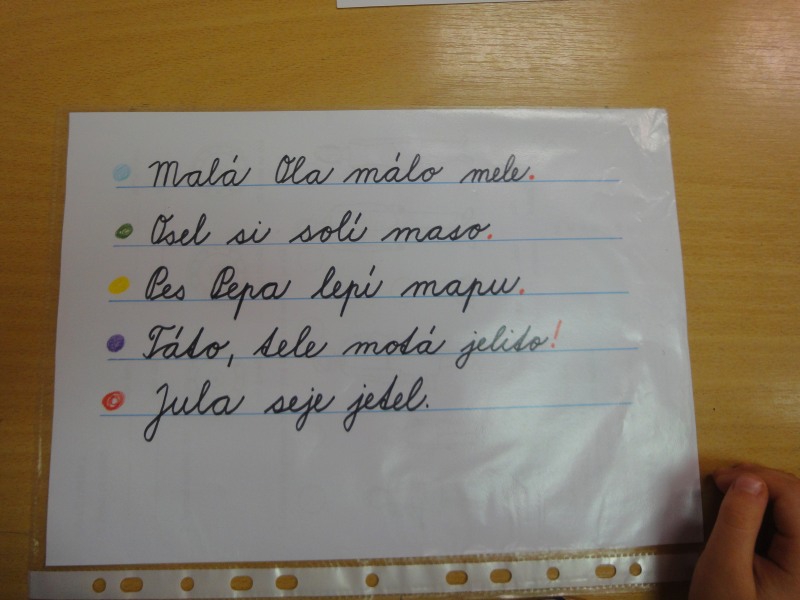 Malá Ola málo mele.
Osel si solí maso.
Pes Pepa lepí mapu.
Táto, tele motá jelito!
Jula seje jetel.